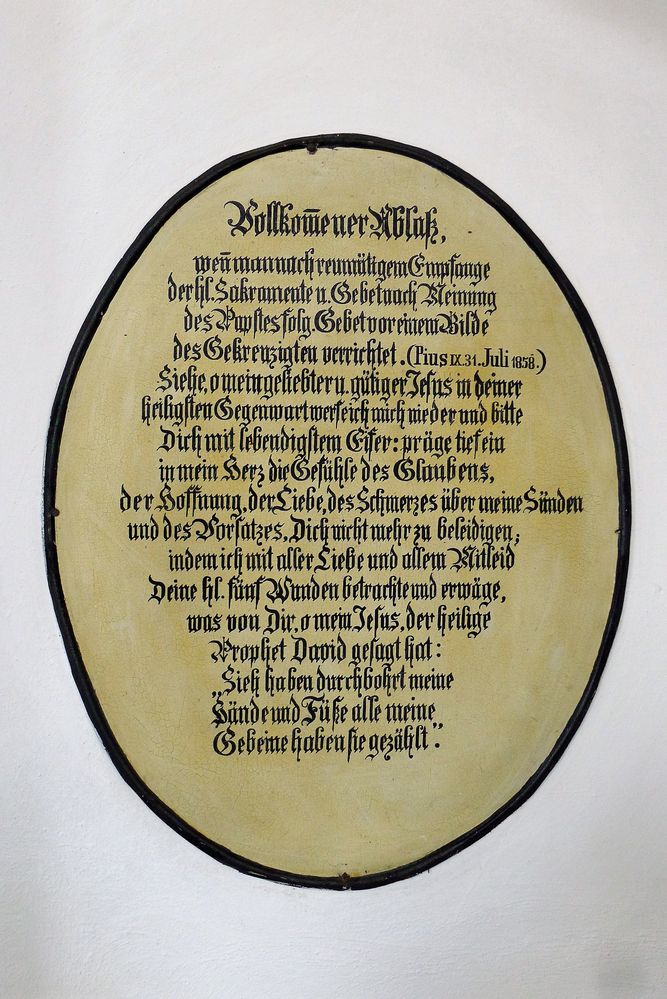 Vollkom̅ener Ablaß,
wen̅ man nach reumütigem Empfange
der hl. Sakramente u. Gebet nach Meinung
des Papstes folg. Gebet vor einem Bilde
des Gekreuzigten verrichtet. (Pius IX. 31. Juli 1858.)
Siehe, o mein geliebter u. gütiger Jesus in deiner
heiligsten Gegenwart werfe ich mich nieder und bitte
Dich mit lebendigstem Eifer: präge tief ein
in mein Herz die Gefühle des Glaubens,
der Hoffnung, der Liebe, des Schmerzes über meine Sünden
und des Vorsatzes, Dich nicht mehr zu beleidigen;
indem ich mit aller Liebe und allem Mitleid
Deine hl. fünf Wunden betrachte und erwäge,
was von Dir, o mein Jesus, der heilige
Prophet David gesagt hat:
„Sieh haben durchbohrt meine
Hände und Füße alle meine
Gebeine haben sie gezählt."